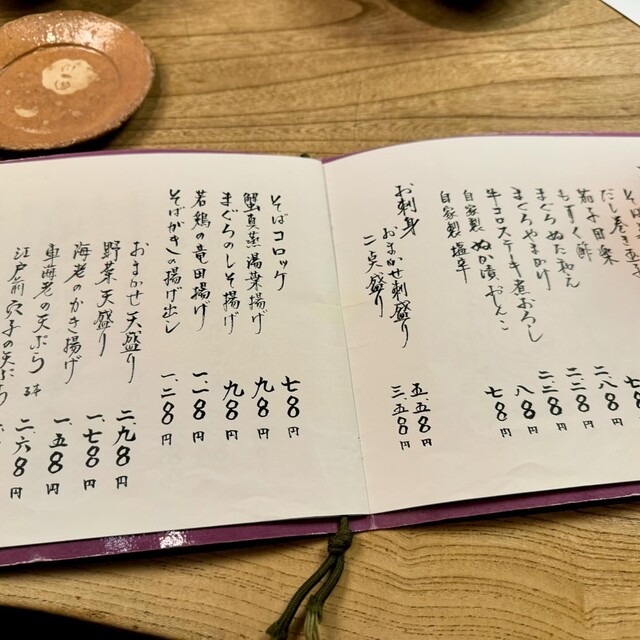 だし巻き玉子
茄子田楽
もずく酢 八〇〇円
まぐろぬた和え
まぐろやまかけ
牛コロステーキ煮おろし
自家製 ぬか漬おしんこ 八〇〇円
自家製塩辛 七〇〇円
お刺身
おまかせ刺盛り 五、五〇〇円
二点盛り 三、五〇〇円
そばコロッケ 七〇〇円
蟹真薯湯葉揚げ 九〇〇円
まぐろのしそ揚げ 九〇〇円
若鶏の竜田揚げ 一、八〇〇円
そばがきの揚げ出し 一、二〇〇円
おまかせ天盛り 二、九〇〇円
野菜天盛り 一、七〇〇円
海老のかき揚げ 一、五〇〇円
車海老の天ぷら 二、六〇〇円
江戸前穴子の天ぷら